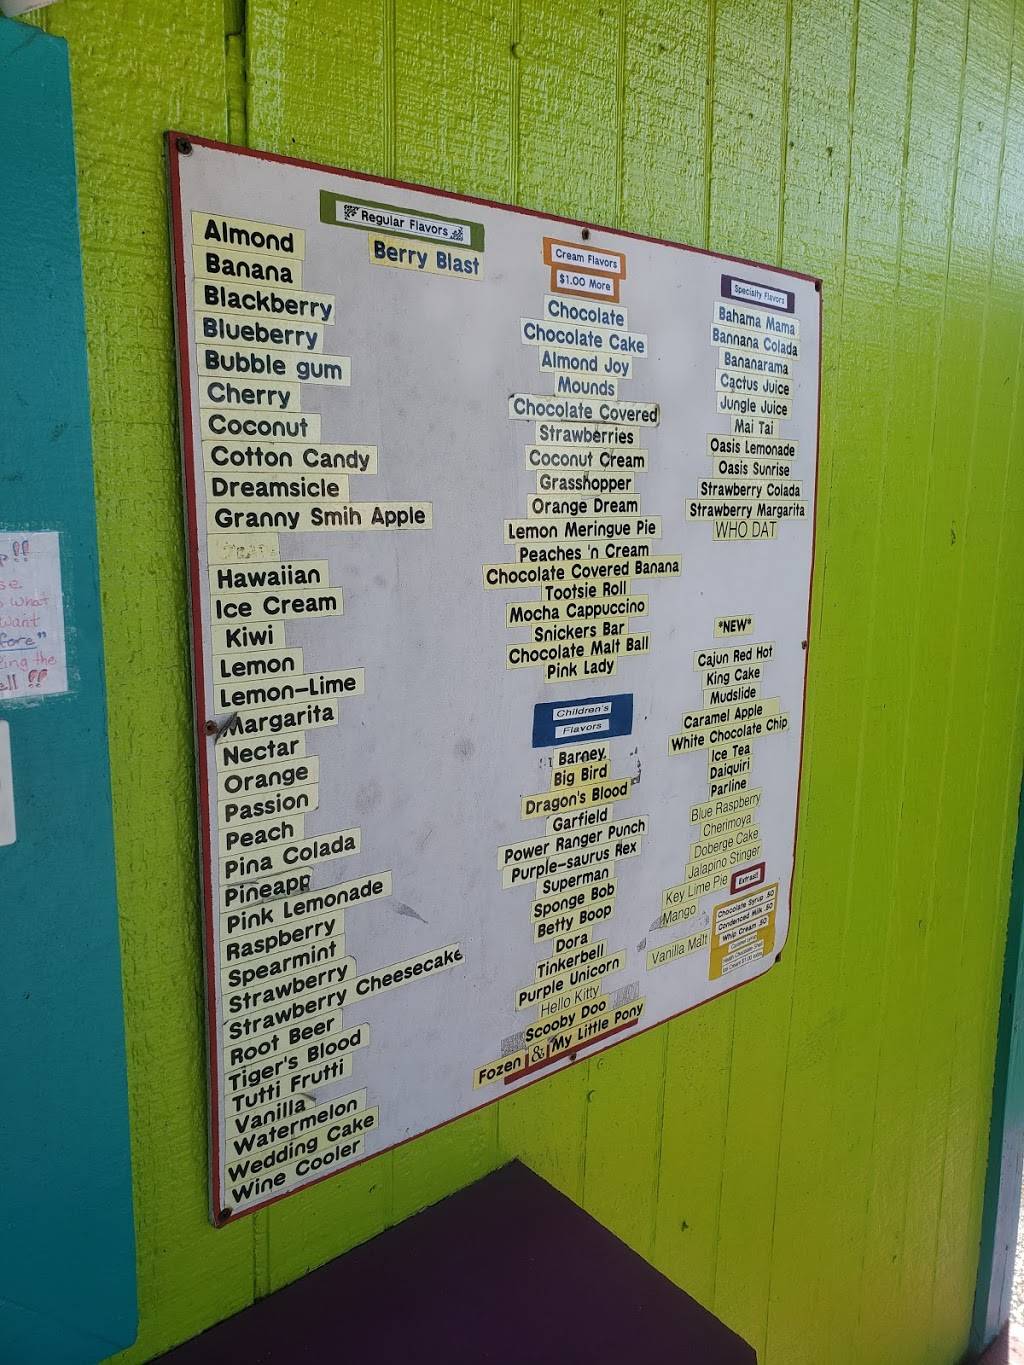 Regular Flavors
Almond
Berry Blast
Banana
Blackberry
Blueberry
Bubble gum
Cherry
Coconut
Cotton Candy
Dreamsicle
Granny Smih Apple
Hawaiian
Ice Cream
Kiwi
Lemon
Lemon-Lime
Margarita
Nectar
Orange
Passion
Peach
Pina Colada
Pineapp
Pink Lemonade
Raspberry
Spearmint
Strawberry
Strawberry Cheesecake
Root Beer
Tiger's Blood
Tutti Frutti
Vanilla
Watermelon
Wedding Cake
Wine Cooler
Cream Flavors
$1.00 More
Chocolate
Chocolate Cake
Almond Joy
Mounds
Chocolate Covered
Strawberries
Coconut Cream
Grasshopper
Orange Dream
Lemon Meringue Pie
Peaches 'n Cream
Chocolate Covered Banana
Tootsie Roll
Mocha Cappuccino
Snickers Bar
Chocolate Malt Ball
Pink Lady
Children's
Flavors
Barney
Big Bird
Dragon's Blood
Garfield
Power Ranger Punch
Purple-saurus Rex
Superman
Sponge Bob
Betty Boop
Dora
Tinkerbell
Purple Unicorn
Hello Kitty
Scooby Doo
Fozen & My Little Pony
Specialty Flavors
Bahama Mama
Bannana Colada
Bananarama
Cactus Juice
Jungle Juice
Mai Tai
Oasis Lemonade
Oasis Sunrise
Strawberry Colada
Strawberry Margarita
WHO DAT
*NEW*
Cajun Red Hot
King Cake
Mudslide
Caramel Apple
White Chocolate Chip
Ice Tea
Daiquiri
Parline
Blue Raspberry
Cherimoya
Doberge Cake
Jalapino Stinger
Key Lime Pie
Mango
Vanilla Malt
Extras!!
Chocolate Syrup .50
Condensed Milk .50
Whip Cream .50
p!!
se.
what
want
fore"
ling the
ell !!